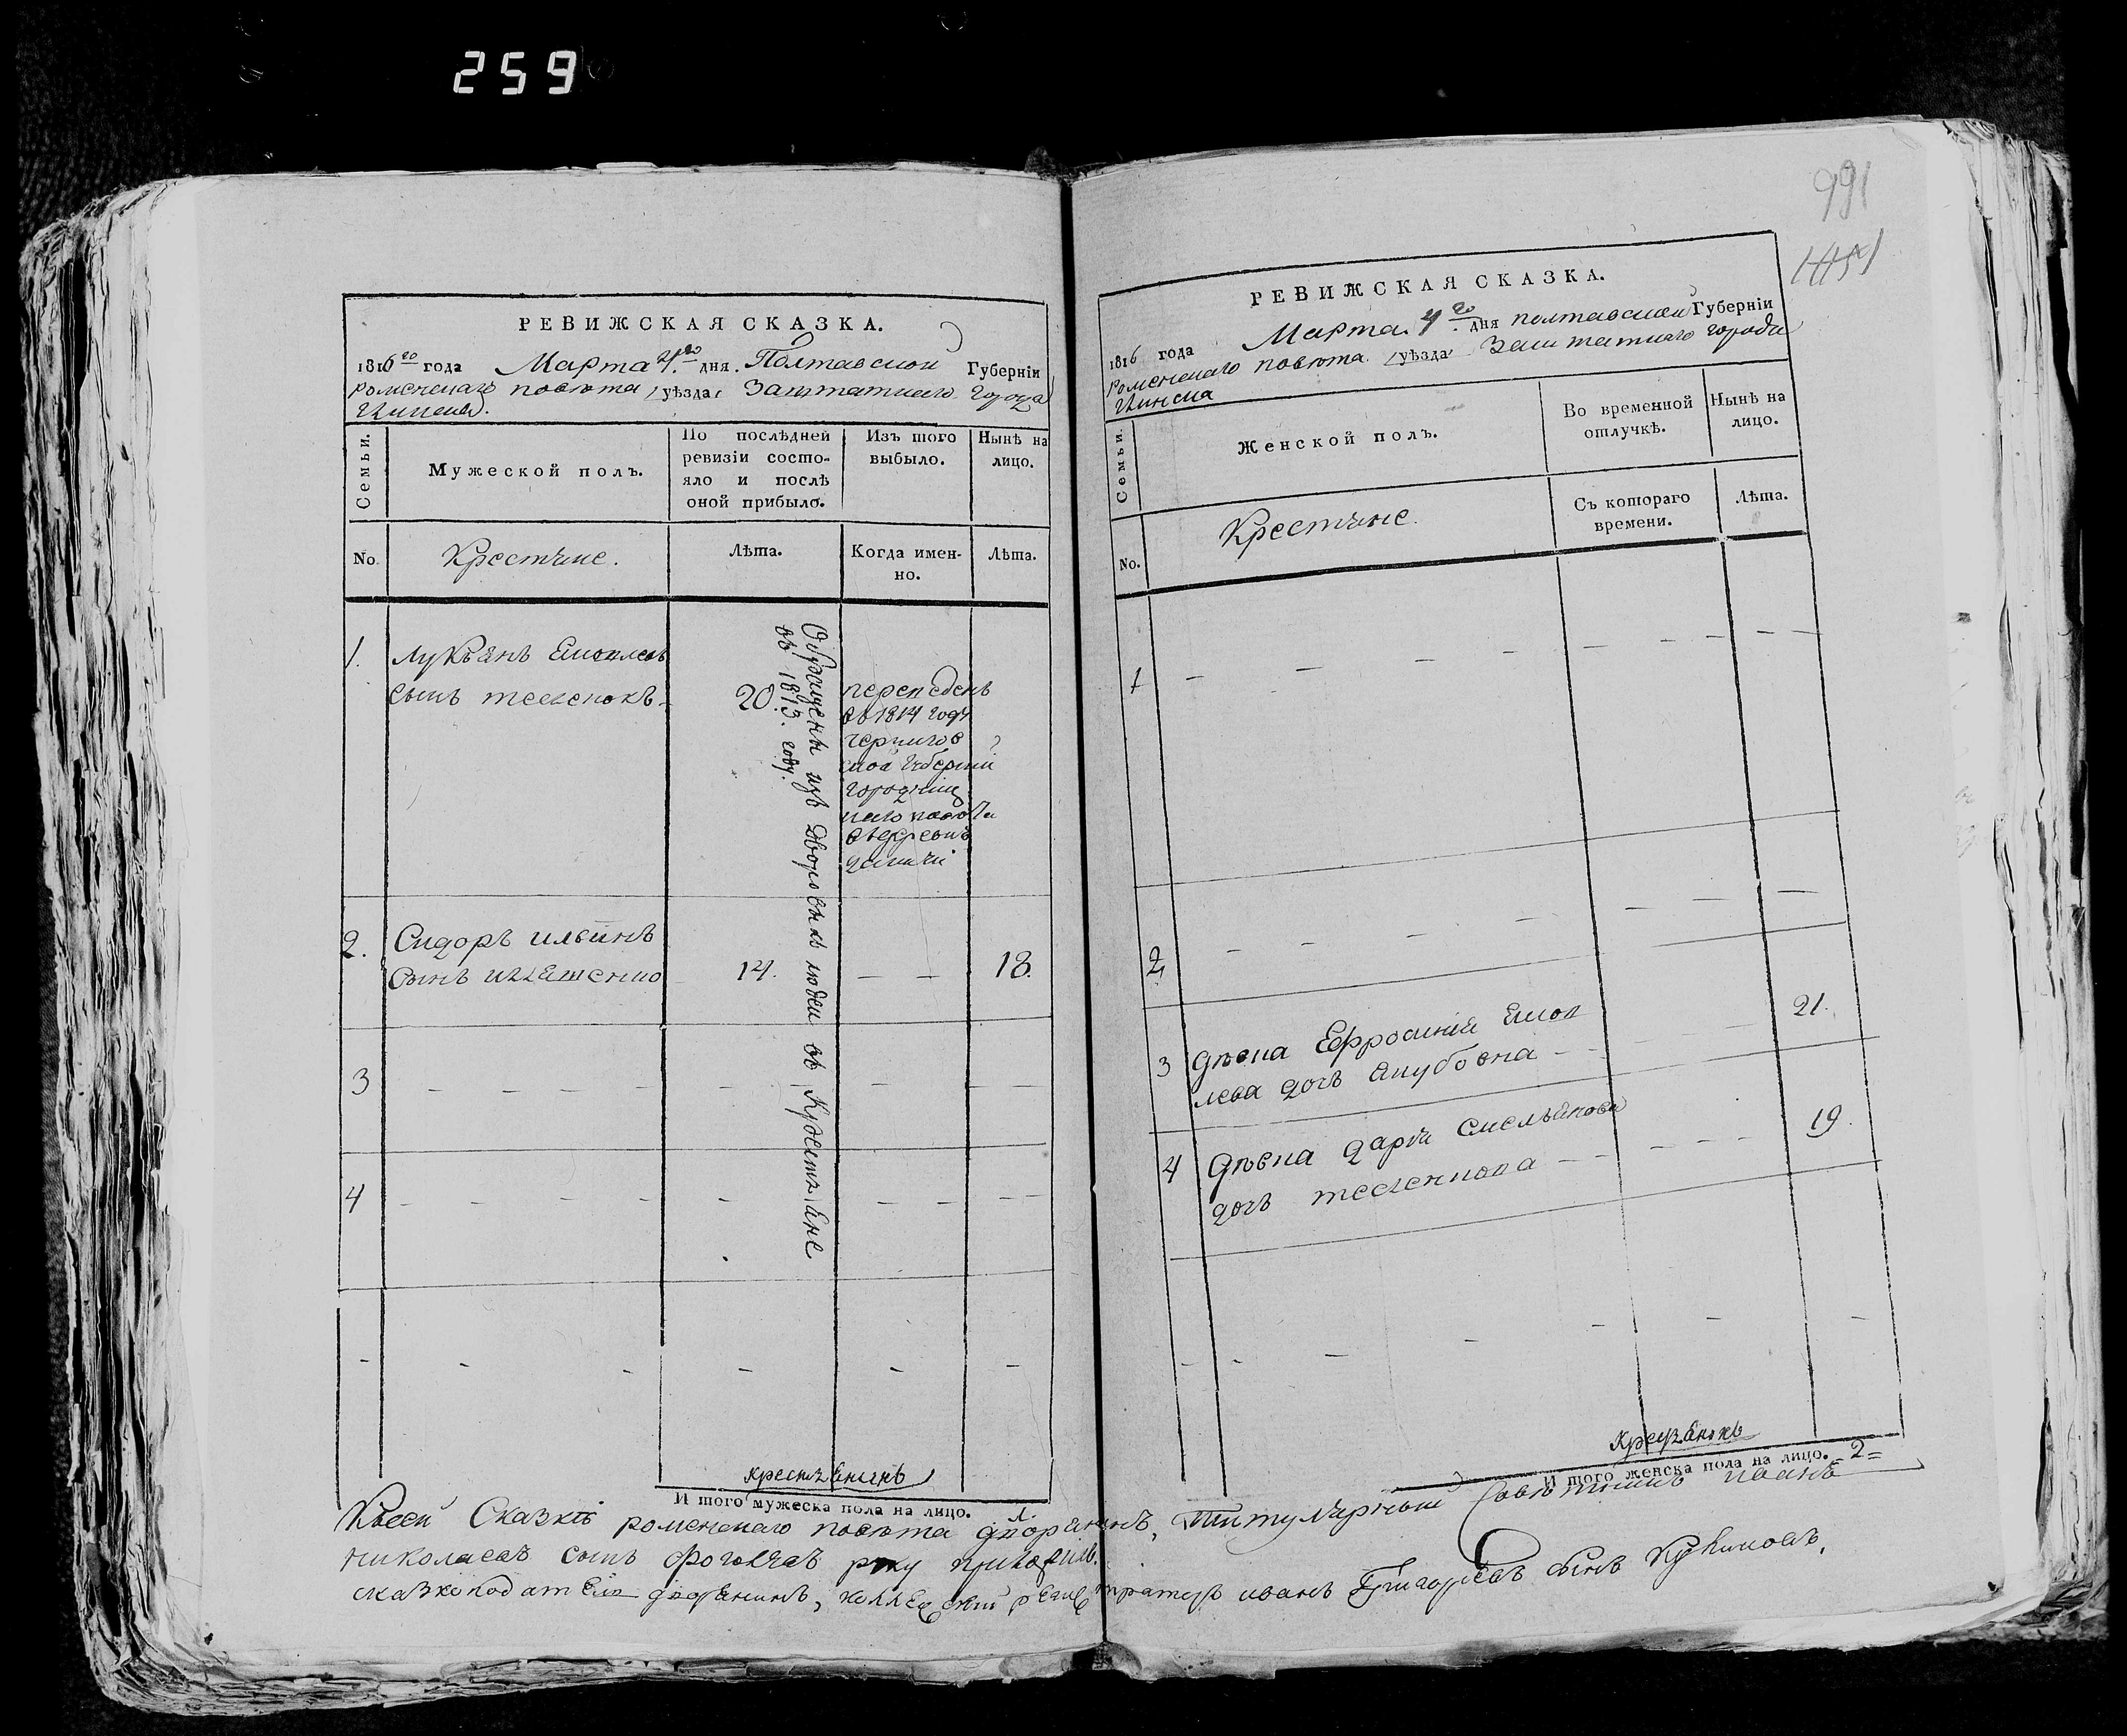 259
991
РЕВИЖСКАЯ СКАЗКА.
1816го года Марта 4го дня. Полтавской Губерніи
роменскаго повѣта /уѣзда/ Заштатнаго города
Глинска.
Семьи.
Мужеской полъ.
По послѣдней
ревизіи состо-
яло и послѣ
оной прибыло.
Изъ того
выбыло.
Нынѣ на
лицо.
No.
Крестяне.
Лѣта.
Когда имен-
но.
Лѣта.
Обращены изъ дворовыхъ людей въ Крестьяне
въ 1813. году.
1. Лукъянъ
сынъ 20.
переведенъ
въ 1814 году
чернигов
ской губерніи
городниц
каго повѣта
2. Сидоръ ильинъ
сынъ илляшенко 14. — — 18.
3 — — — — — — — —
4 — — — — — — — —
крестьянинъ
И того мужеска пола на лицо. 1.
РЕВИЖСКАЯ СКАЗКА.
1816 года Марта 4го дня полтавской Губерніи
роменскаго повѣта /уѣзда/ Заштатнаго города
Глинска
Семьи.
Женской полъ.
Во временной
отлучкѣ.
Нынѣ на
лицо.
No.
Крестяне.
Съ котораго
времени.
Лѣта.
1 — — — — — — — —
2 — — — — — — —
3 дѣвка Ефросинія Яков 21.
лева дочь Якубовна — —
4 дѣвка дарія емельянова 19.
дочь — — — — —
И того женска пола на лицо. =2=
Къ сей Сказкѣ роменскаго повѣта дворянинъ, Титулярный Совѣтникъ иванъ
николаевъ сынъ руку приложилъ.
сказкоподатель дворянинъ, коллежскій регистраторъ иванъ Григорьевъ сынъ